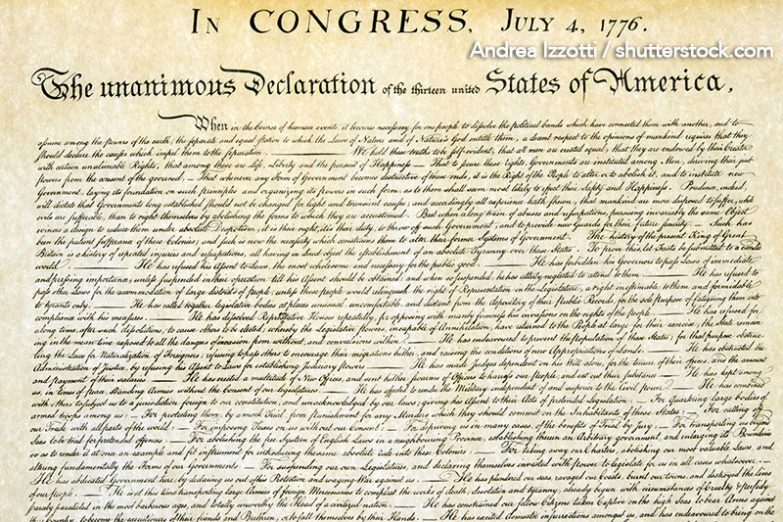 IN CONGRESS, JULY 4, 1776.
Andrea Izzotti / shutterstock.com
The unanimous Declaration of the thirteen united States of America,
When in the Course of human events, it becomes necessary for one people to dissolve the political bands which have connected them with another, and to
assume among the powers of the earth, the separate and equal station to which the Laws of Nature and of Nature's God entitle them, a decent respect to the opinions of mankind requires that they
should declare the causes which impel them to the separation. We hold these truths to be self-evident, that all men are created equal, that they are endowed by their Creator
with certain unalienable Rights, that among these are Life, Liberty and the pursuit of Happiness. — That to secure these rights, Governments are instituted among Men, deriving their just
powers from the consent of the governed, — That whenever any Form of Government becomes destructive of these ends, it is the Right of the People to alter or to abolish it, and to institute new
Government, laying its foundation on such principles and organizing its powers in such form, as to them shall seem most likely to effect their Safety and Happiness. Prudence, indeed,
will dictate that Governments long established should not be changed for light and transient causes; and accordingly all experience hath shewn, that mankind are more disposed to suffer, while
evils are sufferable, than to right themselves by abolishing the forms to which they are accustomed. But when a long train of abuses and usurpations, pursuing invariably the same Object
evinces a design to reduce them under absolute Despotism, it is their right, it is their duty, to throw off such Government, and to provide new Guards for their future security. — Such has
been the patient sufferance of these Colonies; and such is now the necessity which constrains them to alter their former Systems of Government. The history of the present King of Great
Britain is a history of repeated injuries and usurpations, all having in direct object the establishment of an absolute Tyranny over these States. To prove this, let Facts be submitted to a candid
world. He has refused his Assent to Laws, the most wholesome and necessary for the public good. He has forbidden his Governors to pass Laws of immediate
and pressing importance, unless suspended in their operation till his Assent should be obtained; and when so suspended, he has utterly neglected to attend to them. He has refused to
pass other Laws for the accommodation of large districts of people, unless those people would relinquish the right of Representation in the Legislature, a right inestimable to them and formidable
to tyrants only. He has called together legislative bodies at places unusual, uncomfortable, and distant from the depository of their public Records, for the sole purpose of fatiguing them into
compliance with his measures. He has dissolved Representative Houses repeatedly, for opposing with manly firmness his invasions on the rights of the people. He has refused for
a long time, after such dissolutions, to cause others to be elected; whereby the Legislative powers, incapable of Annihilation, have returned to the People at large for their exercise; the State remain-
ing in the mean time exposed to all the dangers of invasion from without, and convulsions within. He has endeavoured to prevent the population of these States; for that purpose obstruc-
ting the Laws for Naturalization of Foreigners; refusing to pass others to encourage their migrations hither, and raising the conditions of new Appropriations of Lands. He has obstructed the
Administration of Justice, by refusing his Assent to Laws for establishing Judiciary powers. He has made Judges dependent on his Will alone, for the tenure of their offices, and the amount
and payment of their salaries. He has erected a multitude of New Offices, and sent hither swarms of Officers to harrass our people, and eat out their substance. He has kept among
us, in times of peace, Standing Armies without the Consent of our legislatures. He has affected to render the Military independent of and superior to the Civil power. He has combined
with others to subject us to a jurisdiction foreign to our constitution, and unacknowledged by our laws; giving his Assent to their Acts of pretended Legislation: For Quartering large bodies of
armed troops among us: For protecting them, by a mock Trial, from punishment for any Murders which they should commit on the Inhabitants of these States: For cutting off
our Trade with all parts of the world: For imposing Taxes on us without our Consent: For depriving us in many cases, of the benefits of Trial by Jury: For transporting us beyond
Seas to be tried for pretended offences: For abolishing the free System of English Laws in a neighbouring Province, establishing therein an Arbitrary government, and enlarging its Boundaries
so as to render it at once an example and fit instrument for introducing the same absolute rule into these Colonies: For taking away our Charters, abolishing our most valuable Laws, and
altering fundamentally the Forms of our Governments: For suspending our own Legislatures, and declaring themselves invested with power to legislate for us in all cases whatsoever.
He has abdicated Government here, by declaring us out of his Protection and waging War against us. He has plundered our seas, ravaged our Coasts, burnt our towns, and destroyed the lives
of our people. He is at this time transporting large Armies of foreign Mercenaries to compleat the works of death, desolation and tyranny, already begun with circumstances of Cruelty & perfidy
scarcely paralleled in the most barbarous ages, and totally unworthy the Head of a civilized nation. He has constrained our fellow Citizens taken Captive on the high Seas to bear Arms against
to become the executioners of their friends and Brethren, or to fall themselves by their Hands. He has excited domestic insurrections amongst us, and has endeavoured to bring on the